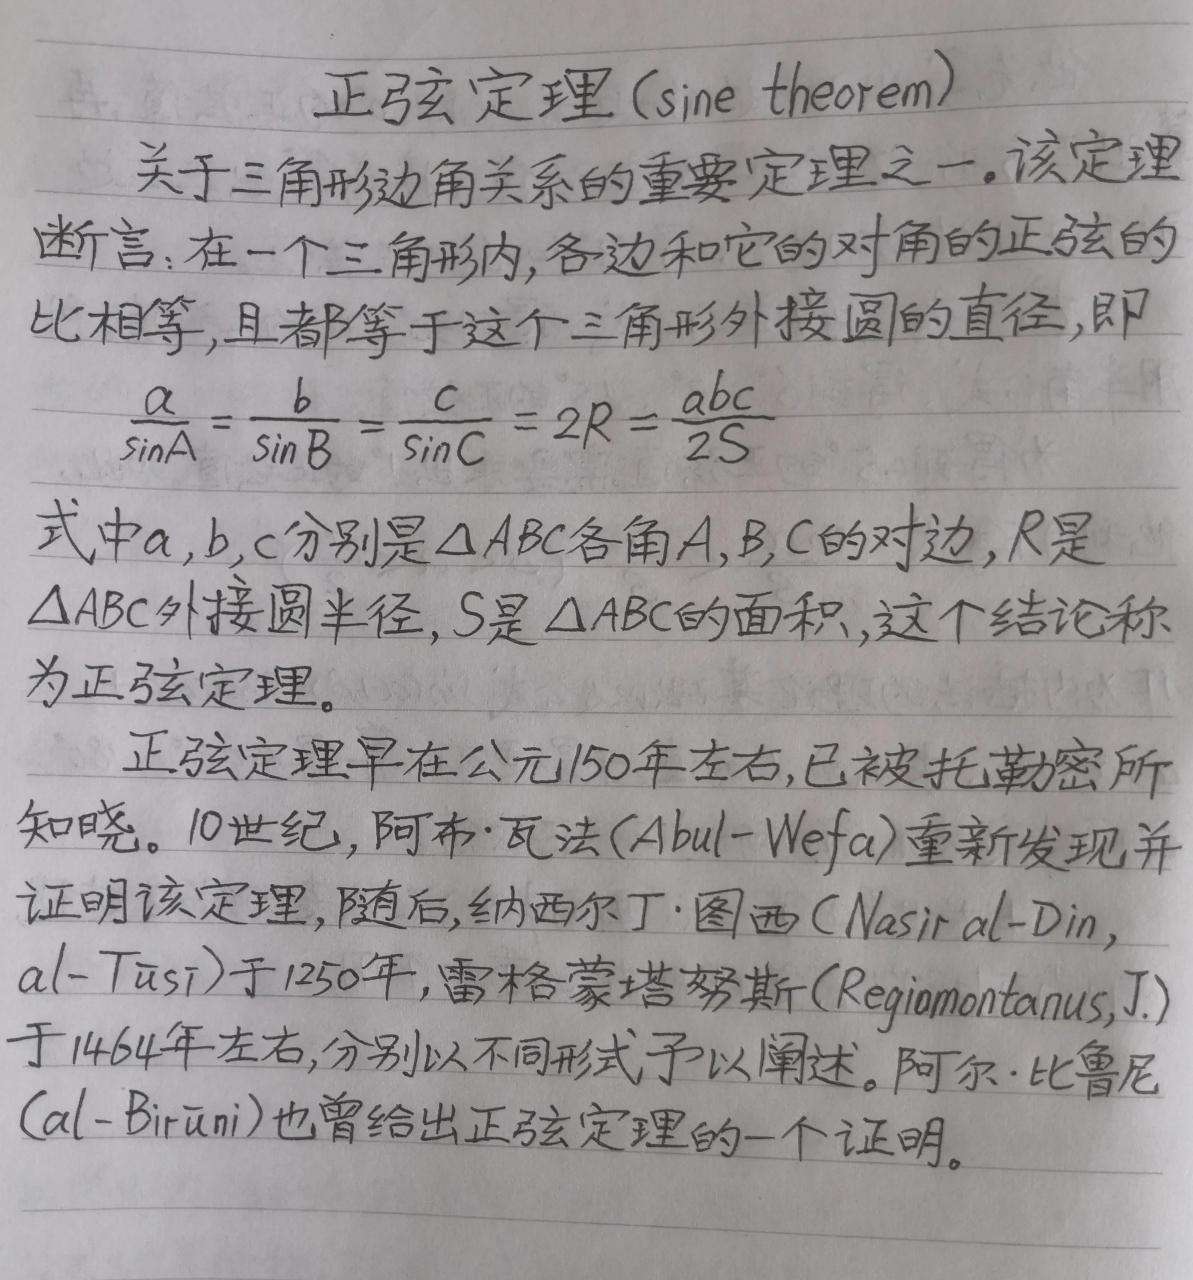 正弦定理(sine theorem)
关于三角形边角关系的重要定理之一。该定理
断言:在一个三角形内,各边和它的对角的正弦的
比相等,且都等于这个三角形外接圆的直径,即
a/sinA = b/sinB = c/sinC = 2R = abc/2S
式中a,b,c分别是△ABC各角A,B,C的对边,R是
△ABC外接圆半径,S是△ABC的面积,这个结论称
为正弦定理。
正弦定理早在公元150年左右,已被托勒密所
知晓。10世纪,阿布·瓦法(Abul-Wefa)重新发现并
证明该定理,随后,纳西尔丁·图西(Nasir al-Din,
al-Tūsī)于1250年,雷格蒙塔努斯(Regiomontanus,J.)
于1464年左右,分别以不同形式予以阐述。阿尔·比鲁尼
(al-Birūni)也曾给出正弦定理的一个证明。